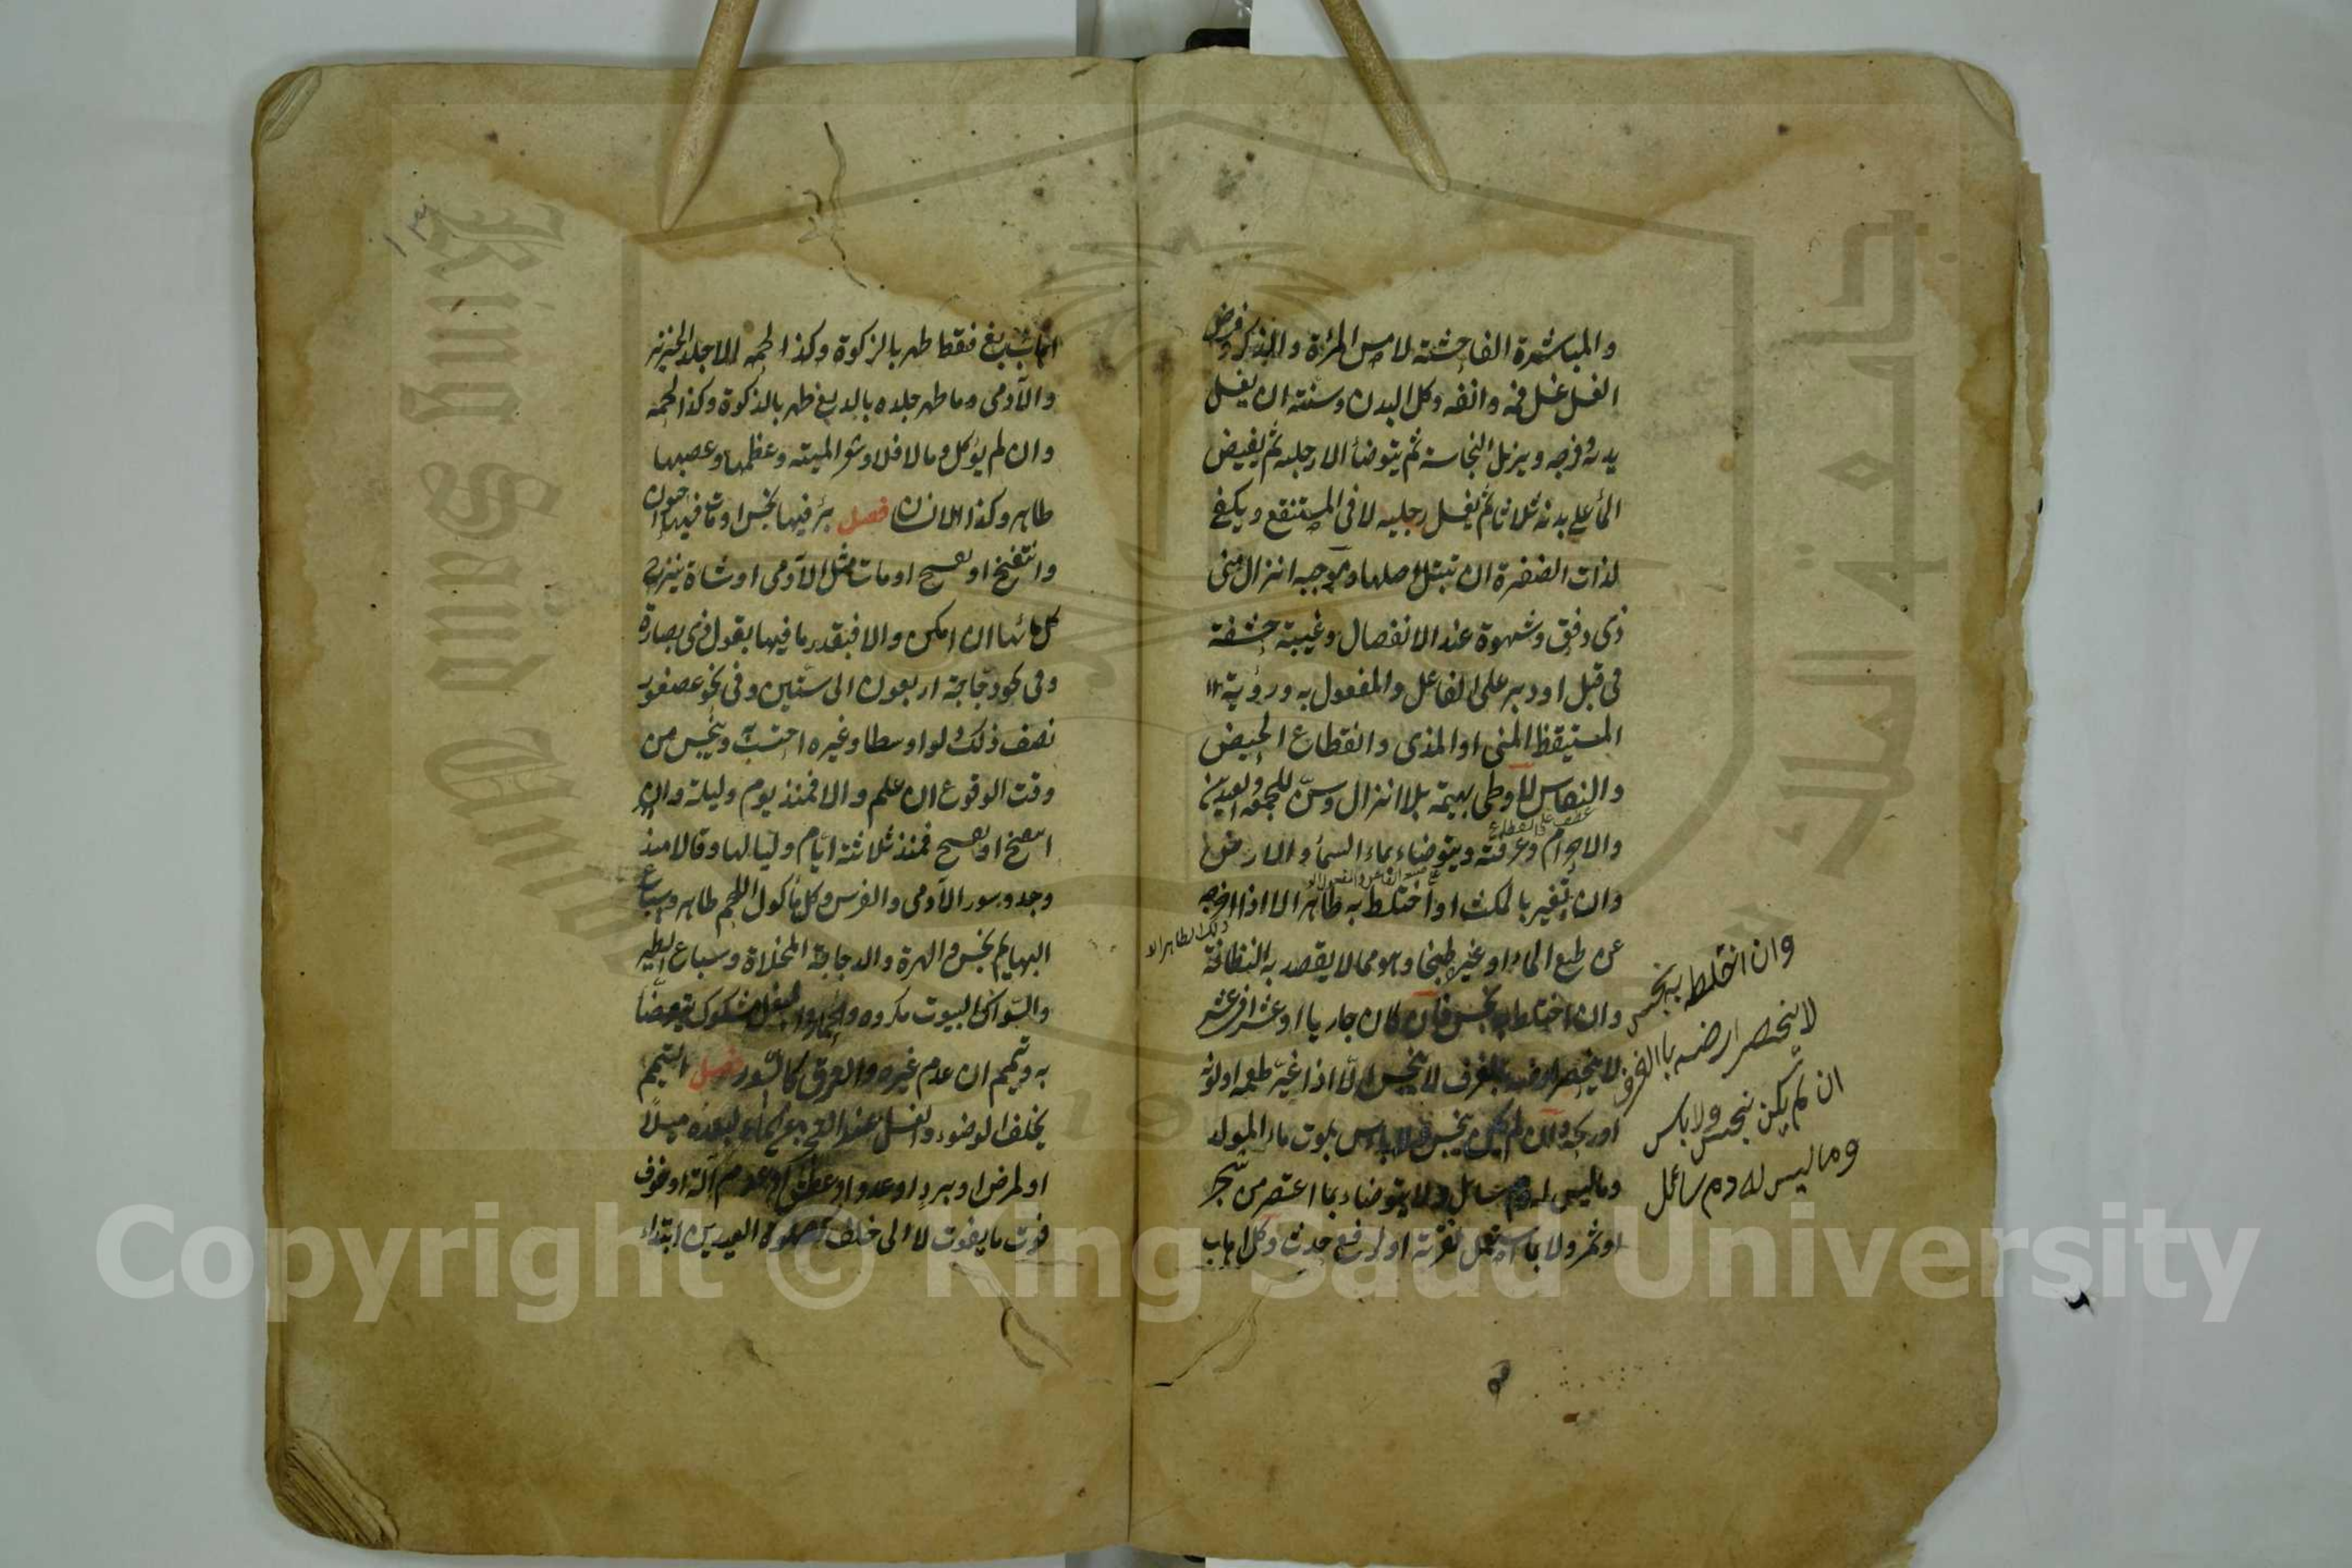 والمباشرة الفاحشة لا مس المرئة والذكر وفرض
الغسل غسل فمه وانفه وكل البدن وسنته ان يغسل
يديه وفرجه ويزيل النجاسة ثم يتوضأ الا رجليه ثم يفيض
الماء على بدنه ثلاثا ثم يغسل رجليه لا في المستنقع ويكفي
لذات الضفرة ان تبتل اصلها وموجبه انزال مني
ذي دفق وشهوة عند الانفصال وغيبة حشفة
في قبل او دبر على الفاعل والمفعول به ورؤية
المستيقظ المني او المذي وانقطاع الحيض
والنفاس لا وطي بهيمة بلا انزال وسن للجمعة والعيدين
عطف على انقطاع
والاحرام وعرفة ويتوضاء بماء السماء والارض
وان تغير بالمكث او اختلط به طاهر الا اذا اخرجه
ذلك الطاهر الا
عن طبع الماء او غيره طبخا وهو مما لا يقصد به النظافة
وان اختلط به نجس فان كان جاريا او عشرا في عشر
لا ينحصر ارضه بالغرف لا ينجس الا اذا غير طعمه او لونه
او ريحه وان لم يكن ينجس ولا باس بموت ماء المولد
وما ليس له دم سائل ولا يتوضاء بما اعتصر من شجر
او ثمر ولا بما استعمل لقربة او لرفع حدث وكل اهاب
وان اختلط به نجس
لا ينحصر ارضه باالغرف
ان لم يكن ينجس ولا باس
وما ليس له دم سائل
اهاب دبغ فقط طهر بالزكوة وكذا لحمه الا جلد الخنزير
والآدمي وما طهر جلده بالدبغ طهر بالذكوة وكذا لحمه
وان لم يؤكل وما لا فلا وشعر الميتة وعظمها وعصبها
طاهر وكذا الانسان فصل بئر فيها نجس او مات فيها حيوان
وانتفخ او تفسح او مات مثل الآدمي او شاة ينزح
كل مائها ان امكن والا فبقدر ما فيها بقول ذي بصارة
وفي نحو دجاجة اربعون الى ستين وفي نحو عصفور
نصف ذلك دلوا وسطا وغيره احتسب وينجس من
وقت الوقوع ان علم والا فمنذ يوم وليلة وان
انتفخ او تفسح فمنذ ثلاثة ايام ولياليها وقالا منذ
وجد وسور الآدمي والفرس وكل مأكول اللحم طاهر وسباع
البهايم نجس والهرة والدجاجة المخلاة وسباع الطير
والسواكن البيوت مكروه والحمار والبغل مشكوك يتوضأ
به وتيمم ان عدم غيره والعرق كالسور فصل التيمم
يخلف الوضوء والغسل عند العجز عن الماء لبعده ميلا
او لمرض او برد او عدو او عطش او عدم آلة او خوف
فوت ما يفوت لا الى خلف كصلوة العيدين ابتداء
Copyright © King Saud University
King Saud Univ
جامعة الملك
1957